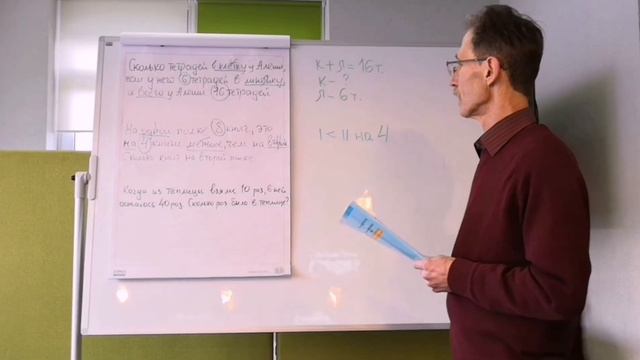 Сколько тетрадей в клетку у Алёши,
если у него 6 тетрадей в линейку,
а всего у Алёши 16 тетрадей
На одной полке 8 книг, это
на 4 книги меньше, чем на второй
Сколько книг на второй полке
Когда из теплицы взяли 10 роз, в ней
осталось 40 роз. Сколько роз было в теплице?
К + Л = 16 т.
К - ?
Л - 6 т.
I < II на 4